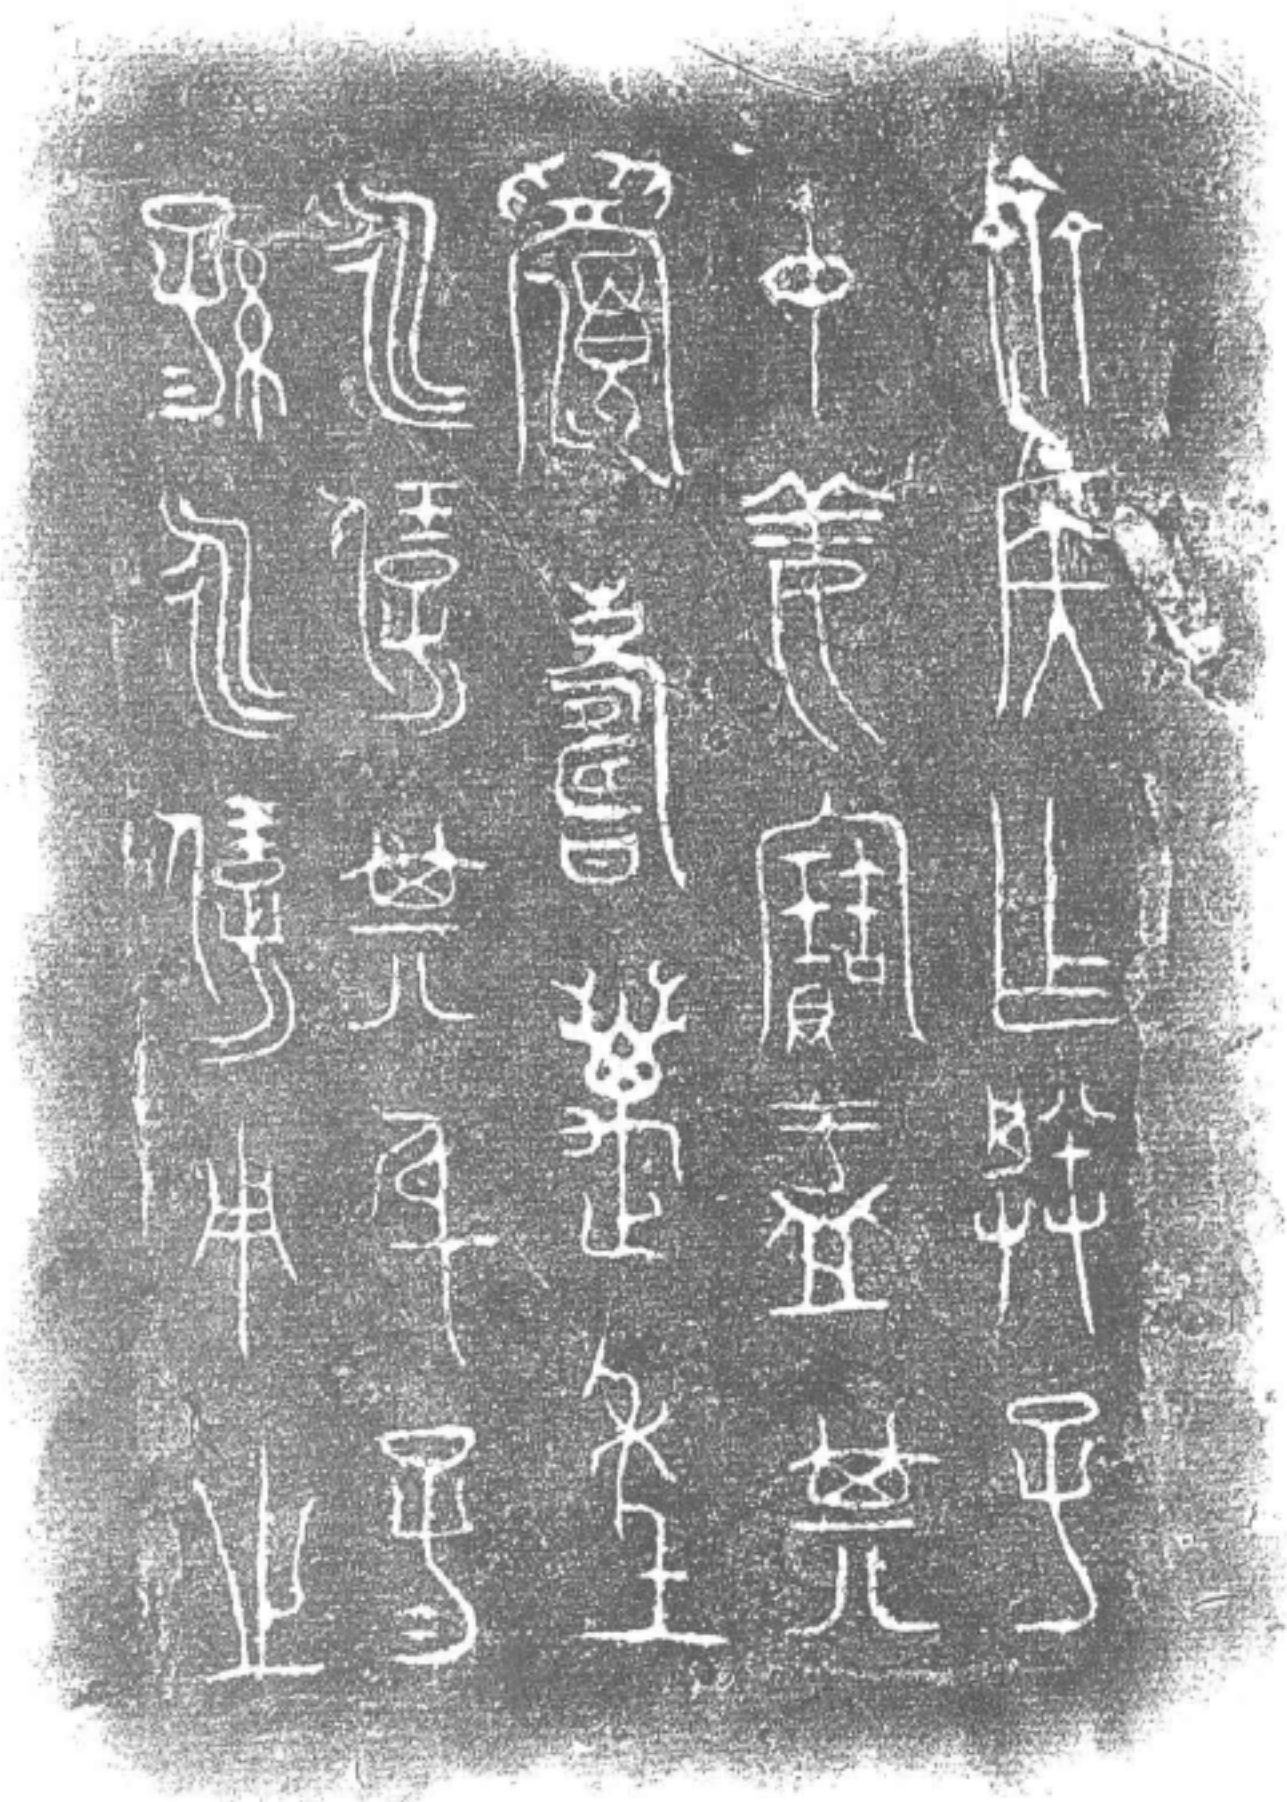 齊侯乍朕子
中姜寶盂其
眉壽邁年
永保其身子=
孫=永保用之